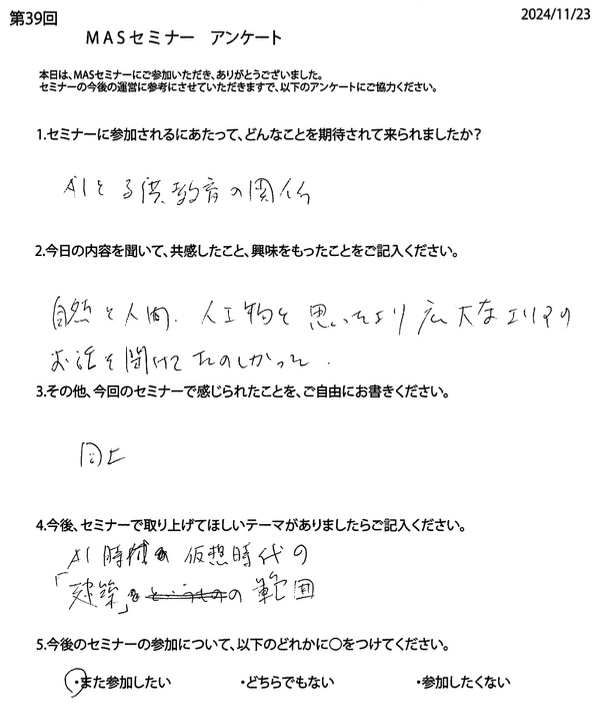 第39回
2024/11/23
MASセミナー アンケート
本日は、MASセミナーにご参加いただき、ありがとうございました。
セミナーの今後の運営に参考にさせていただきますで、以下のアンケートにご協力ください。
1.セミナーに参加されるにあたって、どんなことを期待されて来られましたか?
AIと子供教育の関係
2.今日の内容を聞いて、共感したこと、興味をもったことをご記入ください。
自然と人間、人工物と思いたより広大なエリアの
お話を聞けてたのしかった.
3.その他、今回のセミナーで感じられたことを、ご自由にお書きください。
同上
4.今後、セミナーで取り上げてほしいテーマがありましたらご記入ください。
AI時代 仮想時代の
「建築」の範囲
5.今後のセミナーの参加について、以下のどれかに〇をつけてください。
・また参加したい ・どちらでもない ・参加したくない